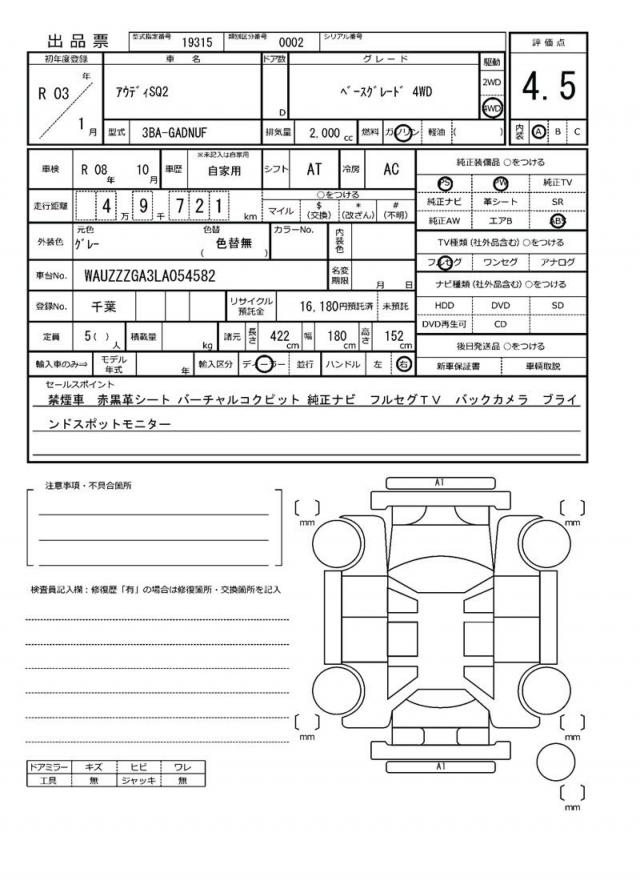 出品票 型式指定番号 19315 類別区分番号 0002 シリアル番号
評価点
4.5
内装 A B C
初年度登録 車名 ドア数 グレード 駆動
R 03 年 1 月 アウディSQ2 D ベースグレード 4WD 2WD 4WD
型式 3BA-GADNUF 排気量 2,000 cc 燃料 ガソリン 軽油 ( )
車検 R 08 年 10 月 車歴 ※未記入は自家用 自家用 シフト AT 冷房 AC
走行距離 4 万 9 千 7 2 1 km ○をつける マイル $ (交換) * (改ざん) # (不明)
外装色 元色 グレー 色替 ( 色替無 ) カラーNo. 内装色
車台No. WAUZZZGA3LA054582 名変期限 月 日
登録No. 千葉 リサイクル預託金 16,180円預託済 未預託
定員 5( ) 人 積載量 kg 諸元 長さ 422 cm 幅 180 cm 高さ 152 cm
輸入車のみ⇒ モデル年式 年 輸入区分 ディーラー 並行 ハンドル 左 右
純正装備品 ○をつける
PS PW 純正TV
純正ナビ 革シート SR
純正AW エアB ABS
TV種類(社外品含む) ○をつける
フルセグ ワンセグ アナログ
ナビ種類(社外品含む) ○をつける
HDD DVD SD
DVD再生可 CD
後日発送品 ○をつける
新車保証書 車輌取説
セールスポイント
禁煙車 赤黒革シート バーチャルコクピット 純正ナビ フルセグTV バックカメラ ブライ
ンドスポットモニター
注意事項・不具合箇所
検査員記入欄：修復歴「有」の場合は修復箇所・交換箇所を記入
ドアミラー キズ ヒビ ワレ
工具 無 ジャッキ 無
A1
mm
mm
mm
mm
A1
mm